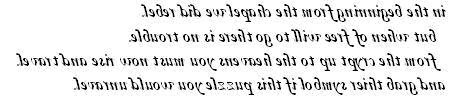 in the beginning from the chapel we did rebel.
but when of free will to go there is no trouble.
from the crypt up to the heavens you must now rise and travel.
and grab thier symbol if this puzzle you would unravel.